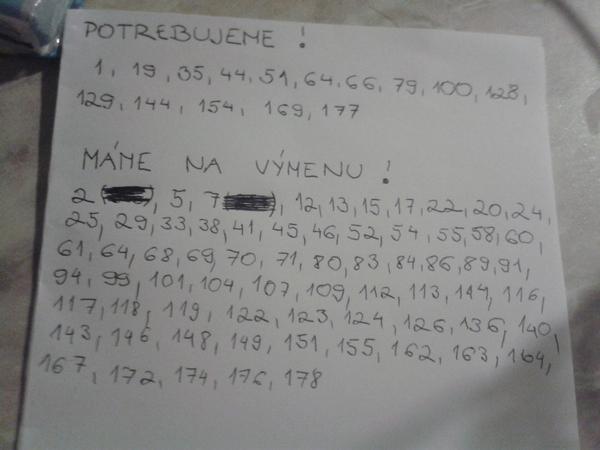 POTREBUJEME !
1, 19, 35, 44, 51, 64, 66, 79, 100, 128,
129, 144, 154, 169, 177
MÁME NA VÝMENU !
2 , 5, 7 , 12, 13, 15, 17, 22, 20, 24,
25, 29, 33, 38, 41, 45, 46, 52, 54, 55, 58, 60,
61, 64, 68, 69, 70, 71, 80, 83, 84, 86, 89, 91,
94, 99, 101, 104, 107, 109, 112, 113, 114, 116,
117, 118, 119, 122, 123, 124, 126, 136, 140,
143, 146, 148, 149, 151, 155, 162, 163, 164,
167, 172, 174, 176, 178